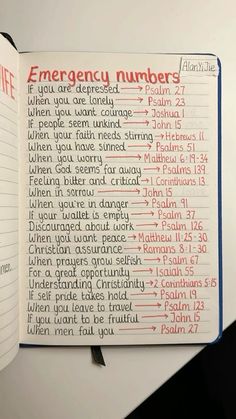 Emergency numbers
AlanYiJie
If you are depressed → Psalm 27
When you are lonely → Psalm 23
When you want courage → Joshua 1
If people seem unkind → John 15
When your faith needs stirring → Hebrews 11
When you have sinned → Psalms 51
When you worry → Matthew 6:19-34
When God seems far away → Psalms 139
Feeling bitter and critical → 1 Corinthians 13
When in sorrow → John 15
When you're in danger → Psalm 91
If your wallet is empty → Psalm 37
Discouraged about work → Psalm 126
When you want peace → Matthew 11:25-30
Christian assurance → Romans 8:1-30
When prayers grow selfish → Psalm 67
For a great opportunity → Isaiah 55
Understanding Christianity → 2 Corinthians 5:15
If self pride takes hold → Psalm 19
When you leave to travel → Psalm 123
If you want to be fruitful → John 15
When men fail you → Psalm 27